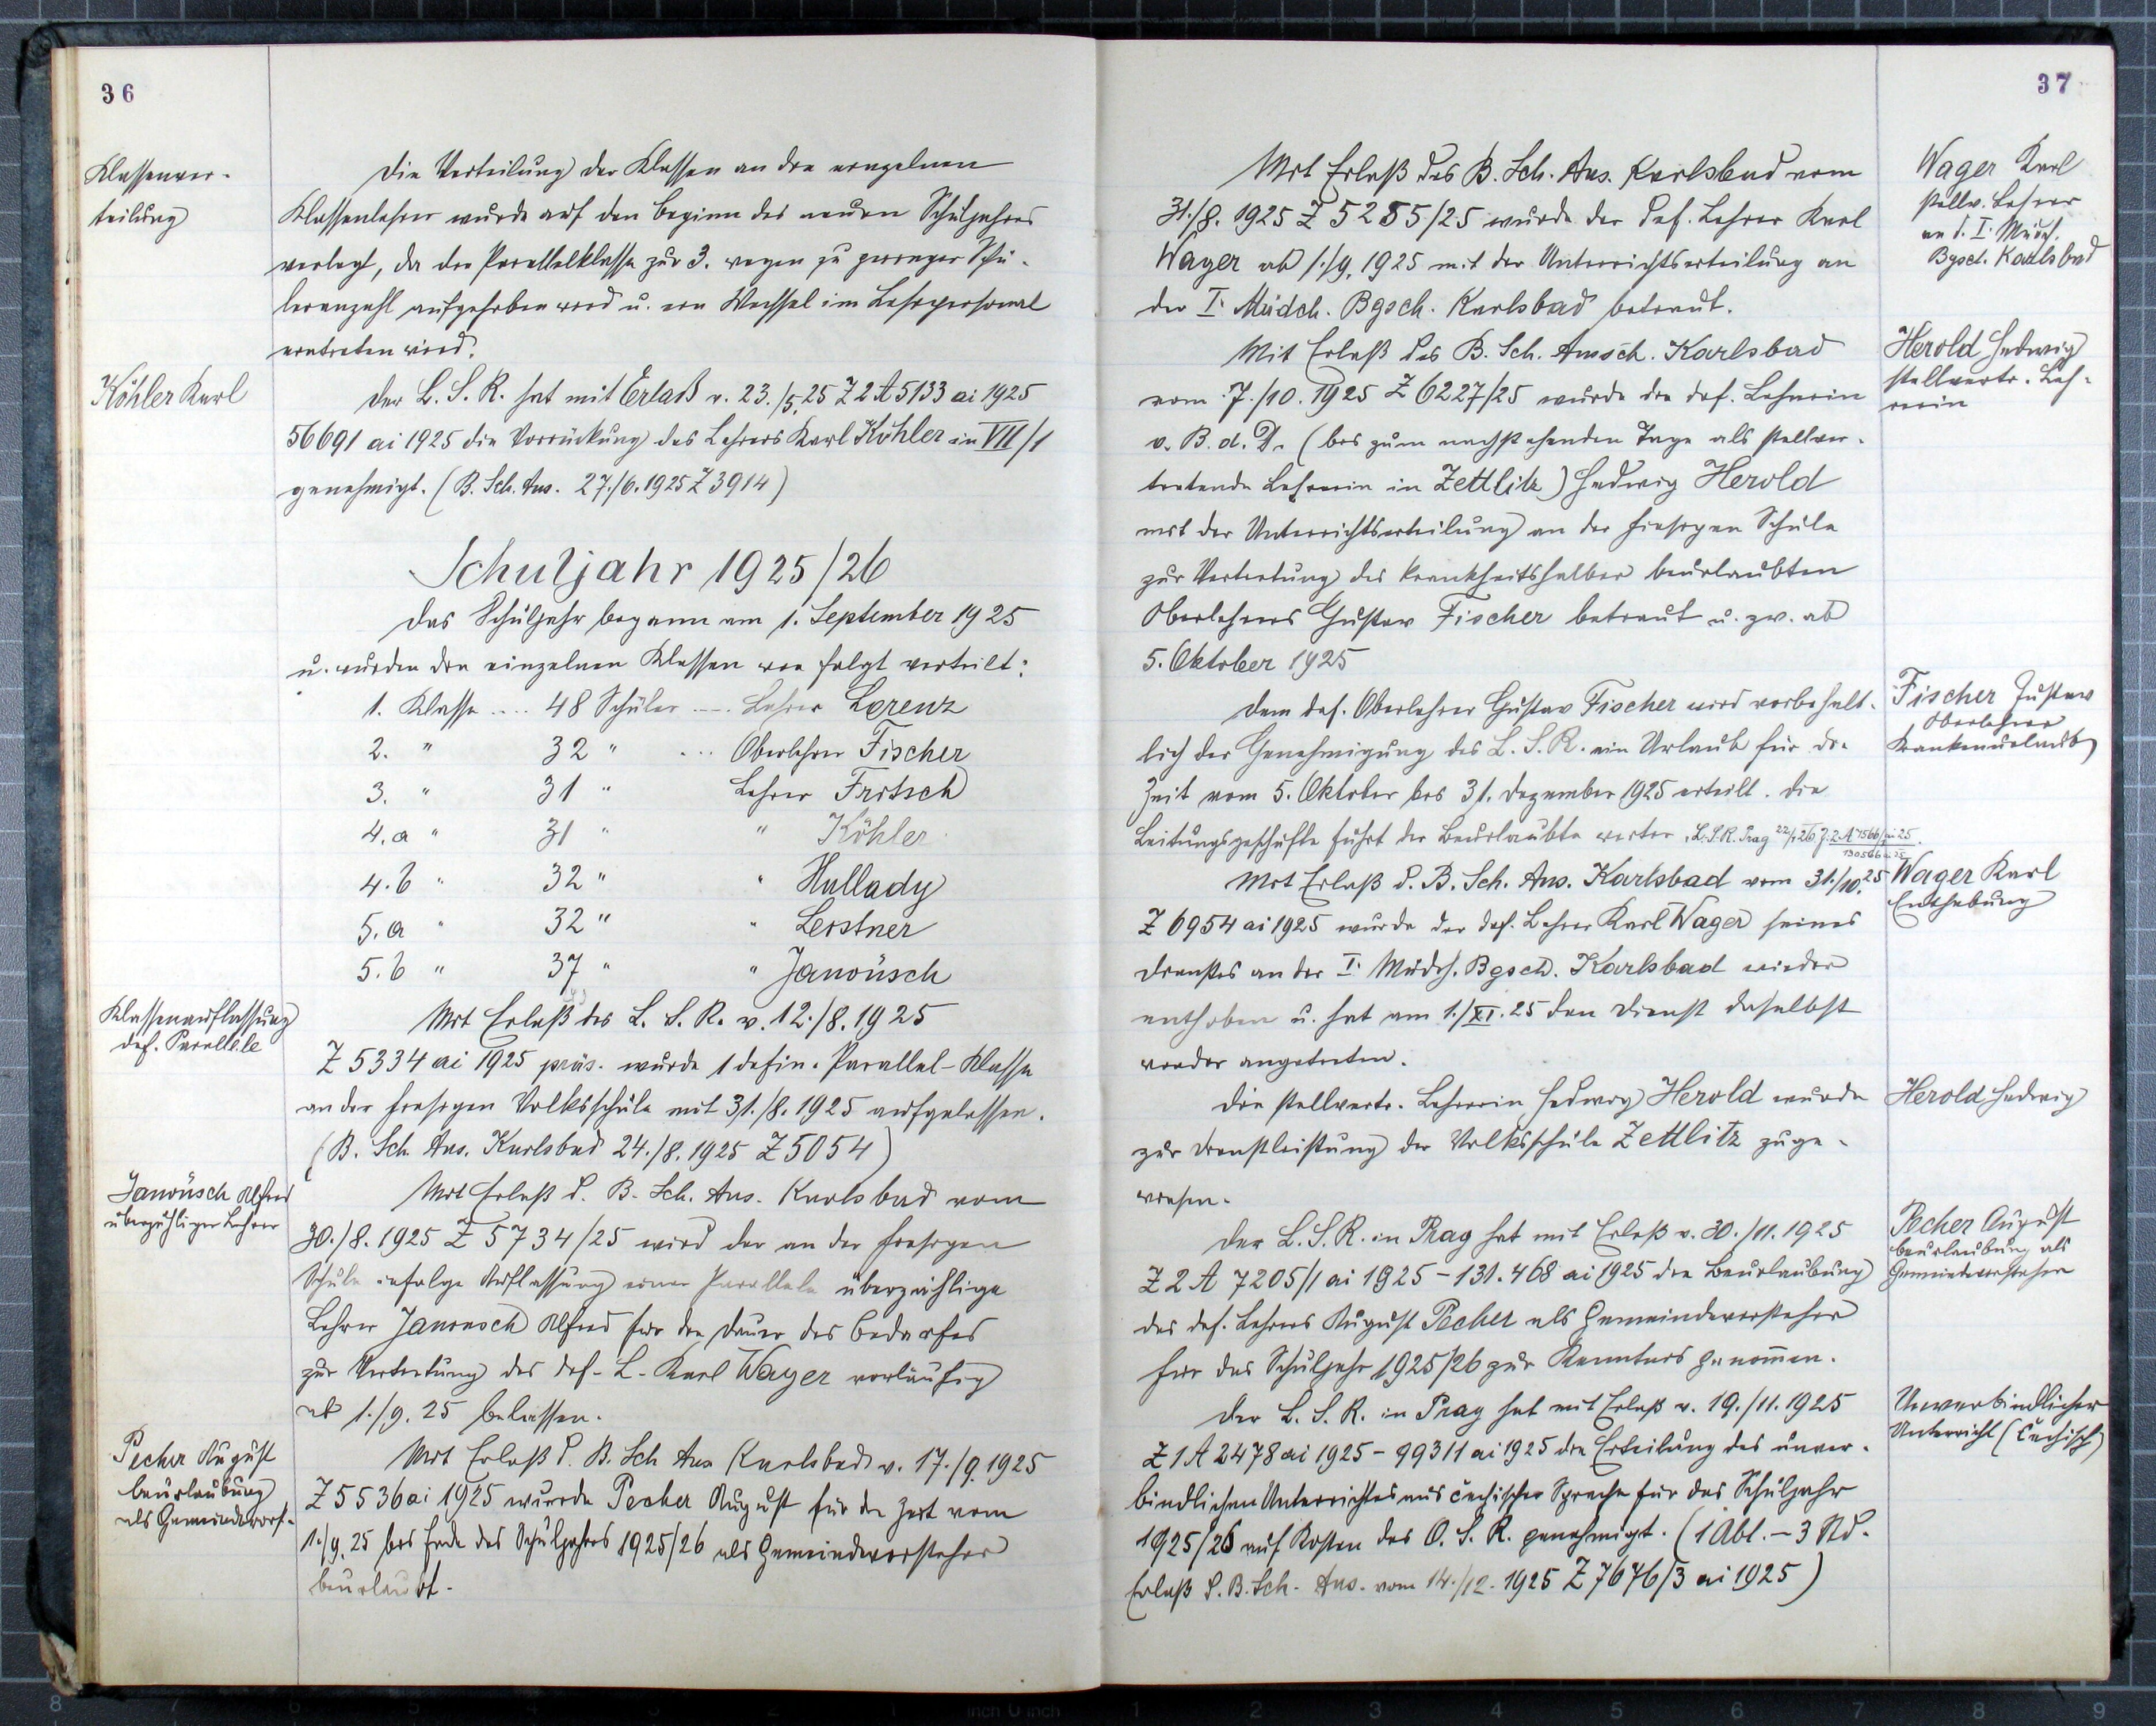 36
Klassenver-
teilung
Die Verteilung der Klassen an die einzelnen
Klassenlehrer wurde auf den Beginn des neuen Schuljahres
verlegt, da die Parallelklasse zur 3. wegen zu geringer Schü-
leranzahl aufgehoben wird u. ein Wechsel im Lehrpersonal
eintreten wird.
Köhler Karl
Der L. S. R. hat mit Erlaß v. 23./5. 25 Z 2 A 5133 ai 1925
56691 ai 1925 die Vorrückung des Lehrers Karl Köhler in VII/1
genehmigt. (B. Sch. Aus. 27./6. 1925 Z 3914)
Schuljahr 1925/26
Das Schuljahr begann am 1. September 1925
u. wurden die einzelnen Klassen wie folgt verteilt:
1. Klasse .... 48 Schüler .... Lehrer Lorenz
2. " 32 " ... Oberlehrer Fischer
3. " 31 " Lehrer Fritsch
4. a " 31 " " Köhler
4. b " 32 " " Hallady
5. a " 32 " " Leistner
5. b " 37 " " Janousch
Klassenauflassung
def. Parallele
Mit Erlaß des L. S. R. v. 12./8. 1925
Z 5334 ai 1925 präs. wurde 1 defin. Parallel-Klasse
an der hiesigen Volksschule mit 31./8. 1925 aufgelassen.
(B. Sch. Aus. Karlsbad 24./8. 1925 Z 5054)
Janousch Alfred
überzähliger Lehrer
Mit Erlaß d. B. Sch. Aus. Karlsbad vom
30./8. 1925 Z 5734/25 wird der an der hiesigen
Schule infolge Auflassung einer Parallele überzählige
Lehrer Janousch Alfred für die Dauer des Bedarfes
zur Vertretung des def. L. Karl Wager vorläufig
ab 1./9. 25 belassen.
Pecher August
beurlaubung
als Gemeindevorst.
Mit Erlaß d. B. Sch Aus Karlsbad v. 17./9. 1925
Z 5536 ai 1925 wurde Pecher August für die Zeit vom
1./9. 25 bis Ende des Schuljahres 1925/26 als Gemeindevorsteher
beurlaubt.
37
Mit Erlaß des B. Sch. Aus. Karlsbad vom
31./8. 1925 Z 5255/25 wurde der def. Lehrer Karl
Wager ab 1./9. 1925 mit der Unterrichtserteilung an
der I. Mädch. Bgsch. Karlsbad betraut.
Wager Karl
stellv. Lehrer
an d. I. Mädch.
Bgsch. Karlsbad
Mit Erlaß des B. Sch. Aussch. Karlsbad
vom 7./10. 1925 Z 6227/25 wurde die def. Lehrerin
v. B. d. D. (bis zum nachstehenden Tage als stellver-
tretende Lehrerin in Zettlitz) Hedwig Herold
mit der Unterrichtserteilung an der hiesigen Schule
zur Vertretung des krankheitshalber beurlaubten
Oberlehrers Gustav Fischer betraut u. zw. ab
5. Oktober 1925
Herold Hedwig
stellvertr. Leh-
rerin
Dem def. Oberlehrer Gustav Fischer wird vorbehalt-
lich der Genehmigung des L. S. R. ein Urlaub für die
Zeit vom 5. Oktober bis 31. Dezember 1925 erteilt. Die
Leitungsgeschäfte führt der Beurlaubte weiter. L. S. R. Prag
Fischer Gustav
Oberlehrer
Krankenurlaub
Mit Erlaß d. B. Sch. Aus. Karlsbad vom 31./10. 25
Z 6954 ai 1925 wurde der def. Lehrer Karl Wager seines
Dienstes an der I. Mädch. Bgsch. Karlsbad wieder
enthoben u. hat am 1./XI. 25 den Dienst daselbst
wieder angetreten.
Wager Karl
Enthebung
Die stellvertr. Lehrerin Hedwig Herold wurde
zur Dienstleistung der Volksschule Zettlitz zuge-
wiesen.
Herold Hedwig
Der L. S. R. in Prag hat mit Erlaß v. 30./11. 1925
Z 2 A 7205/1 ai 1925 - 131.468 ai 1925 die Beurlaubung
des def. Lehrers August Pecher als Gemeindevorsteher
für das Schuljahr 1925/26 zur Kenntnis genommen.
Pecher August
beurlaubung als
Gemeindevorsteher
Der L. S. R. in Prag hat mit Erlaß v. 19./11. 1925
Z 1 A 2478 ai 1925 - 99311 ai 1925 die Erteilung des unver-
bindlichen Unterrichtes aus čechischer Sprache für das Schuljahr
1925/26 auf Kosten des O. S. R. genehmigt. (1 Abt. - 3 Std.
Erlaß d. B. Sch. Aus. vom 14./12. 1925 Z 7676/3 ai 1925)
Unverbindlicher
Unterricht (Čechisch)